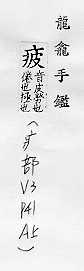 龍龕手鑑
疲
音皮勞也
倦也極也
(疒部
V3
P41
A5)